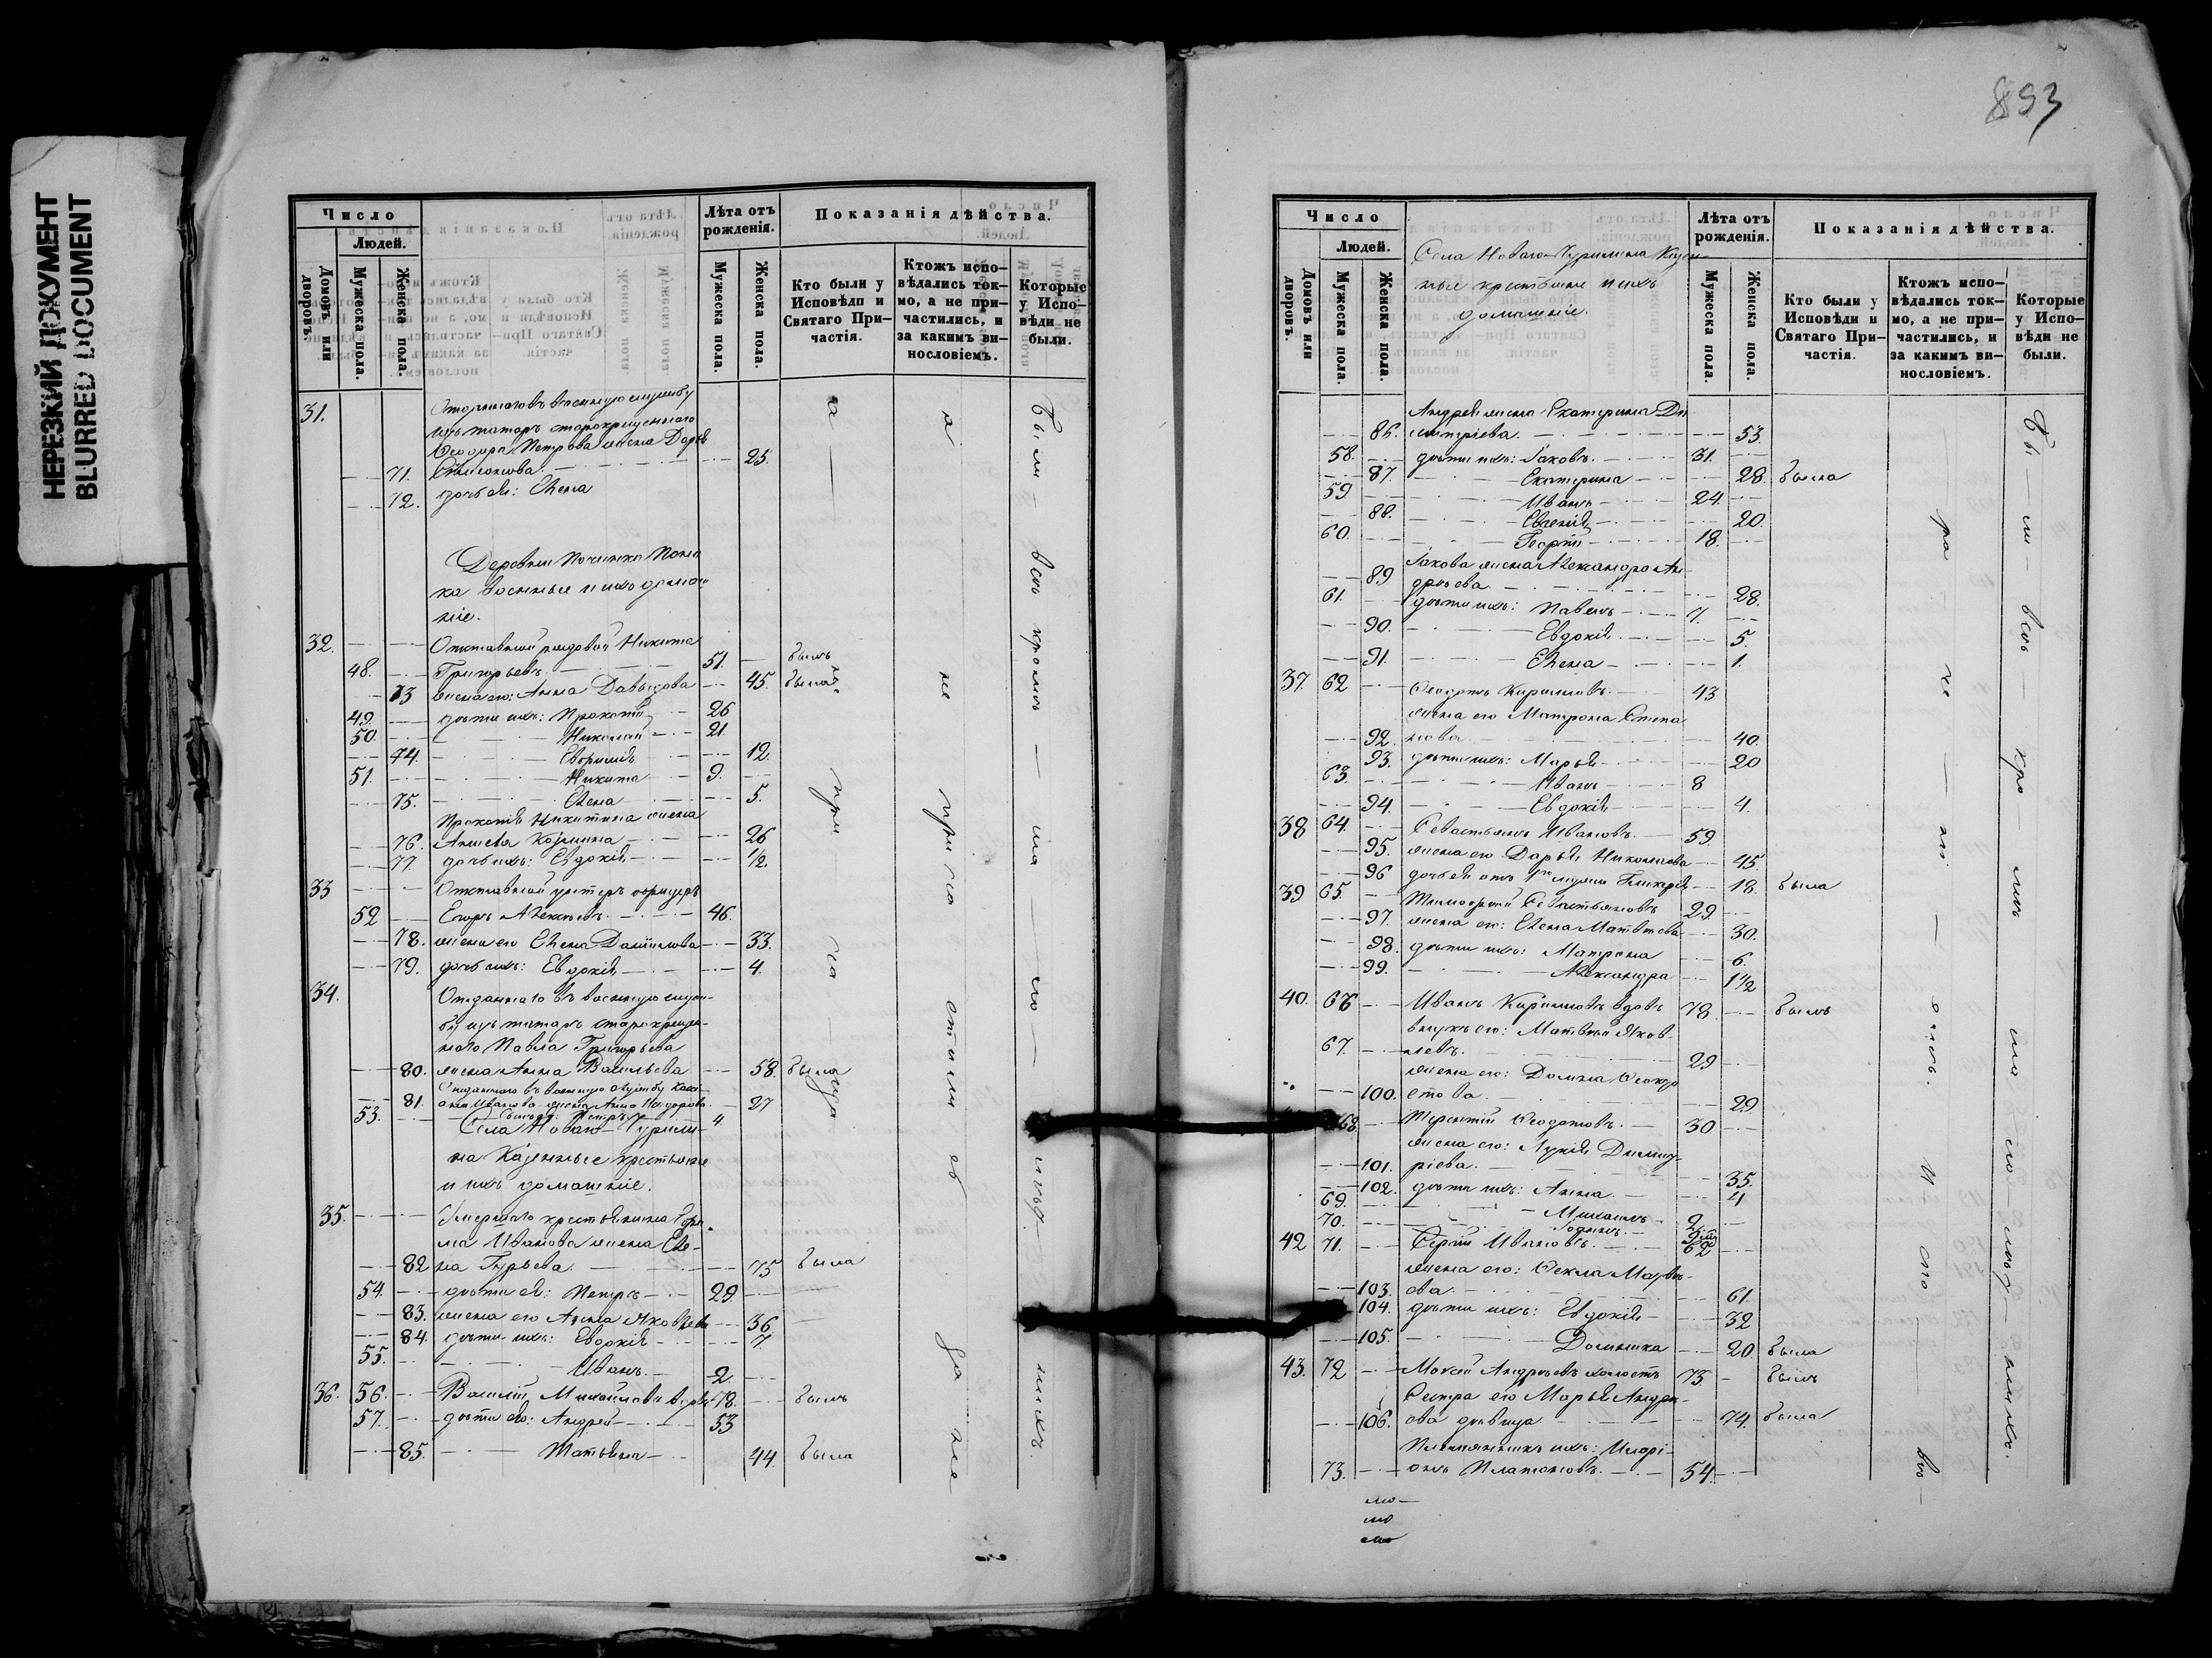 НЕРЕЗКИЙ ДОКУМЕНТ
BLURRED DOCUMENT
Число
Людей.
Домовъ или дворовъ.
Мужеска пола.
Женска пола.
Лѣта отъ рожденія.
Мужеска пола.
Женска пола.
Показанія дѣйства.
Кто были у Исповѣди и Святаго Причастія.
Ктожъ исповѣдались токмо, а не причастились, и за какимъ винословіемъ.
Которые у Исповѣди не были.
31. Отданнаго въ военную службу
изъ татаръ старокрещеннаго
Ѳеодора Петрова жена Дарья
71. 25.
72. дочь ея: Елена
Деревни Починка
военные и ихъ домаш-
ніе.
32. Отставной рядовой Никита
48. Григорьевъ. 51. былъ
73 жена его: Анна Давыдова 45. была
49. дѣти ихъ: Прокопій 26
50. Николай 21.
74. 12.
51. Никита 9.
75. Елена 5.
Прокопія Никитина жена
76. 26
77. дочь ихъ: Евдокія 1/2.
33 Отставной унтеръ офицеръ
52 Егоръ Алексѣевъ. 46.
78. жена его Елена Даніилова 33.
79. дочь ихъ: Евдокія 4.
34. Отданнаго въ военную служ-
бу изъ татаръ старокрещен-
наго Павла Григорьева
80. жена Анна Васильева 58. была
Отданнаго въ военную службу
81. Иванова жена Анна 27
53. Сынъ ея: Петръ 4
Села Новаго-Чурили-
на Казенные крестьяне
и ихъ домашніе.
35. Умершаго крестьянина
Иванова жена Еле-
82 на Гурьева. 75 была
54. дѣти ея: Петръ 29.
83. жена его Анна Яковлева 36
84. дѣти ихъ: Евдокія 7.
55. Иванъ. 2.
36. 56. Василій Михайловъ вдовъ 78. былъ
57. дѣти его: Андрей 53
85. Татьяна 44. была
893
Число
Людей.
Домовъ или дворовъ.
Мужеска пола.
Женска пола.
Села Новаго-Чурилина Казен-
ные крестьяне и ихъ
домашніе.
Лѣта отъ рожденія.
Мужеска пола.
Женска пола.
Показанія дѣйства.
Кто были у Исповѣди и Святаго Причастія.
Ктожъ исповѣдались токмо, а не причастились, и за какимъ винословіемъ.
Которые у Исповѣди не были.
Андрея жена Екатерина Ди
86. митріева. 53.
58. дѣти ихъ: Іаковъ. 31.
87. Екатерина 28. была
59 Иванъ 24.
88. Евгенія 20.
60. Георгій 18.
Іакова жена Александра Ан-
89 дреева 28.
61. дѣти ихъ: Павелъ 7.
90. Евдокія 5.
91. Елена 1.
37. 62 Ѳеодотъ Кирилловъ. 43
жена его Матрона Степа
92. нова 40.
93. дѣти ихъ: Марья 20
63. Иванъ 8
94. Евдокія 4.
38 64. Севастьянъ Ивановъ. 59.
95. жена его Дарья Николаева 45.
96 дочь ея отъ 18. была
39 65. Тимофей Севастьяновъ 29
97. жена его: Елена Матвѣева 30.
98. дѣти ихъ: Матрона 6.
99. Александра 1 1/2
40. 66 Иванъ Кирилловъ вдовъ 78 былъ
внукъ его: Матвѣй Яков-
67. левъ. 29
жена его: Домна Ѳеодо
100. това. 29
68. Терентій Ѳеодотовъ. 30
жена его: Лукія Димит-
101. ріева. 35.
102. дѣти ихъ: Анна. 4
69. Михаилъ 2.
70.
42 71. Сергій Ивановъ. 62
жена его: Ѳекла Матвѣ-
103. ева 61.
104. дѣти ихъ: Евдокія 32
105. Домника 20 была
43. 72 Моисей Андреевъ холостъ 75. былъ
Сестра его Марья Андре-
106. ева дѣвица. 74. была
Племянникъ ихъ: Иларі-
73. онъ Платоновъ. 54.